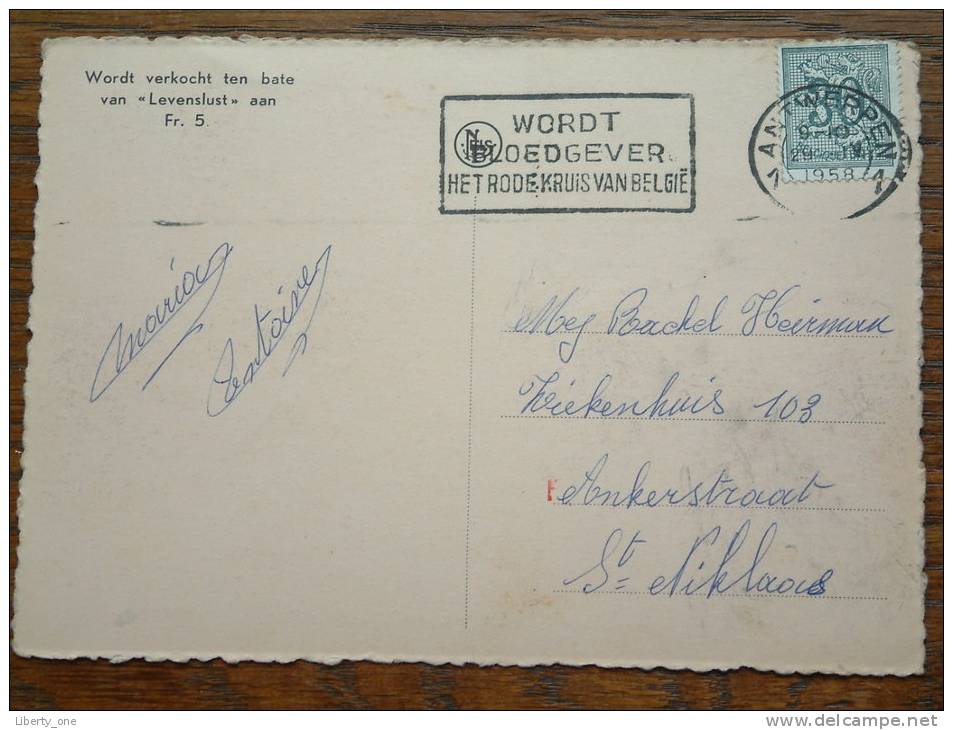 Wordt verkocht ten bate
van «Levenslust» aan
Fr. 5.
WORDT
BLOEDGEVER
HET RODE KRUIS VAN BELGIË
NELS
ANTWERPEN
1 1
9-10
29
1958
30
Maria
Antoine
Mej Rachel Heirman
Ziekenhuis 103
Ankerstraat
St Niklaas
Liberty_one
www.delcampe.net